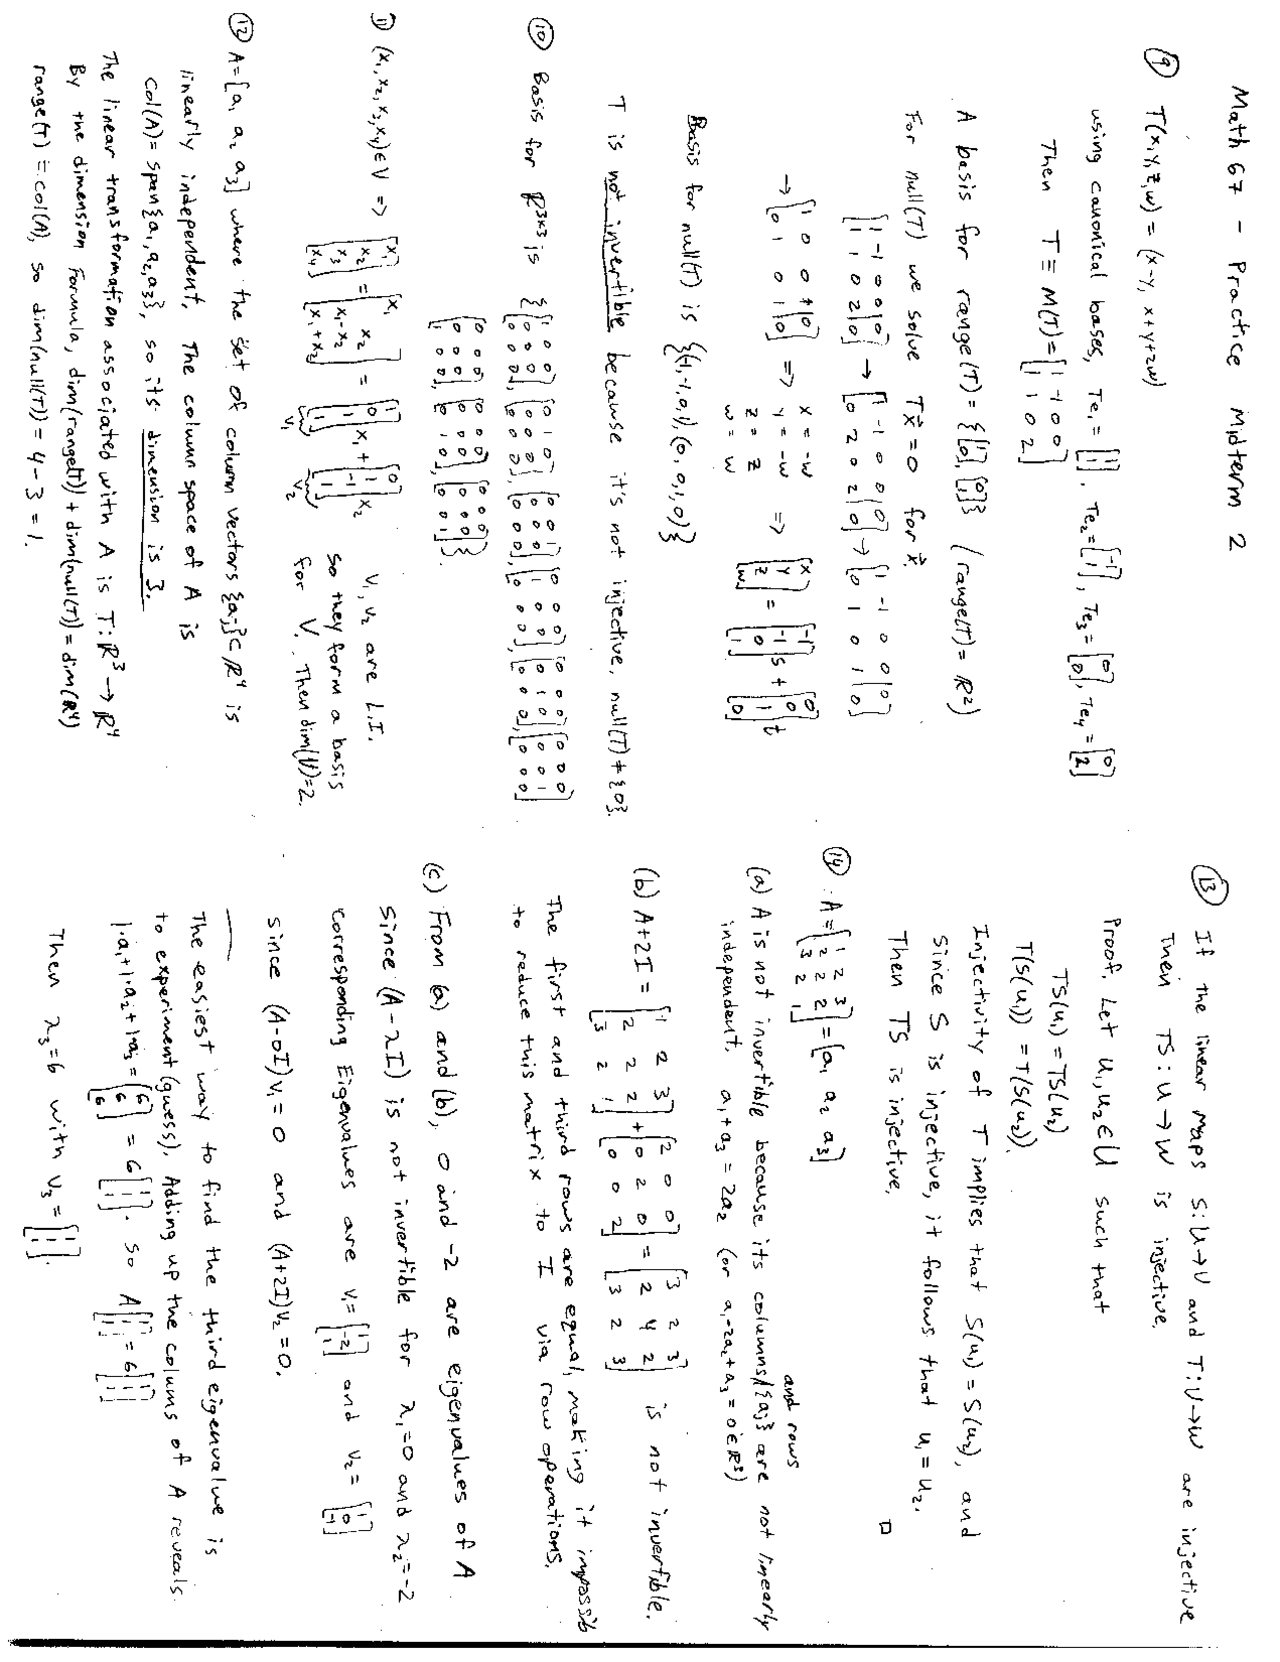 Math 67 - Practice Midterm 2
⑨ T(x,y,z,w) = (x-y, x+y+2w)
using canonical bases, Te₁ = [1; 1], Te₂ = [-1; 1], Te₃ = [0; 0], Te₄ = [0; 2]
Then T ≡ M(T) = [1 -1 0 0; 1 1 0 2]
A basis for range(T) = {[1; 0], [0; 1]} (range(T) = ℝ²)
For null(T) we solve Tx⃗ = 0 for x⃗.
[1 -1 0 0 | 0; 1 1 0 2 | 0] → [1 -1 0 0 | 0; 0 2 0 2 | 0] → [1 -1 0 0 | 0; 0 1 0 1 | 0]
→ [1 0 0 1 | 0; 0 1 0 1 | 0] => x = -w, y = -w, z = z, w = w => [x; y; z; w] = [-1; -1; 0; 1]s + [0; 0; 1; 0]t
Basis for null(T) is {(-1,-1,0,1), (0,0,1,0)}
T is not invertible because it's not injective, null(T) ≠ {0}.
⑩ Basis for ℝ³ˣ³ is {[1 0 0; 0 0 0; 0 0 0], [0 1 0; 0 0 0; 0 0 0], [0 0 1; 0 0 0; 0 0 0], [0 0 0; 1 0 0; 0 0 0], [0 0 0; 0 1 0; 0 0 0], [0 0 0; 0 0 1; 0 0 0],
[0 0 0; 0 0 0; 1 0 0], [0 0 0; 0 0 0; 0 1 0], [0 0 0; 0 0 0; 0 0 1]}.
11) (x₁,x₂,x₃,x₄) ∈ V =>
[x₁; x₂; x₃; x₄] = [x₁; x₂; x₁-x₂; x₁+x₂] = [1; 0; 1; 1]x₁ + [0; 1; -1; 1]x₂
v₁ v₂
v₁, v₂ are L.I.
so they form a basis
for V. Then dim(V)=2.
⑫ A=[a₁ a₂ a₃] where the set of column vectors {aⱼ}⊂ℝ⁴ is
linearly independent. The column space of A is
col(A) = span{a₁,a₂,a₃}, so its dimension is 3.
The linear transformation associated with A is T:ℝ³→ℝ⁴
By the dimension Formula, dim(range(T)) + dim(null(T)) = dim(ℝ⁴)
range(T) = col(A), so dim(null(T)) = 4-3 = 1.
⑬ If the linear maps S:U→V and T:V→W are injective
Then TS:U→W is injective.
Proof. Let u₁,u₂∈U such that
TS(u₁) = TS(u₂)
T(S(u₁)) = T(S(u₂)).
Injectivity of T implies that S(u₁) = S(u₂), and
since S is injective, it follows that u₁ = u₂.
Then TS is injective. □
⑭ A = [1 2 3; 2 2 2; 3 2 1] = [a₁ a₂ a₃]
and rows
(a) A is not invertible because its columns/{aⱼ} are not linearly
independent. a₁+a₃ = 2a₂ (or a₁-2a₂+a₃ = 0∈ℝ³)
(b) A+2I = [1 2 3; 2 2 2; 3 2 1] + [2 0 0; 0 2 0; 0 0 2] = [3 2 3; 2 4 2; 3 2 3] is not invertible.
The first and third rows are equal, making it impossib
to reduce this matrix to I via row operations.
(c) From (a) and (b), 0 and -2 are eigenvalues of A
since (A-λI) is not invertible for λ₁=0 and λ₂=-2
corresponding Eigenvalues are v₁ = [1; -2; 1] and v₂ = [1; 0; -1]
since (A-0I)v₁ = 0 and (A+2I)v₂ = 0.
The easiest way to find the third eigenvalue is
to experiment (guess). Adding up the columns of A reveals
1·a₁+1·a₂+1·a₃ = [6; 6; 6] = 6[1; 1; 1]. so A[1; 1; 1] = 6[1; 1; 1]
Then λ₃=6 with v₃ = [1; 1; 1].